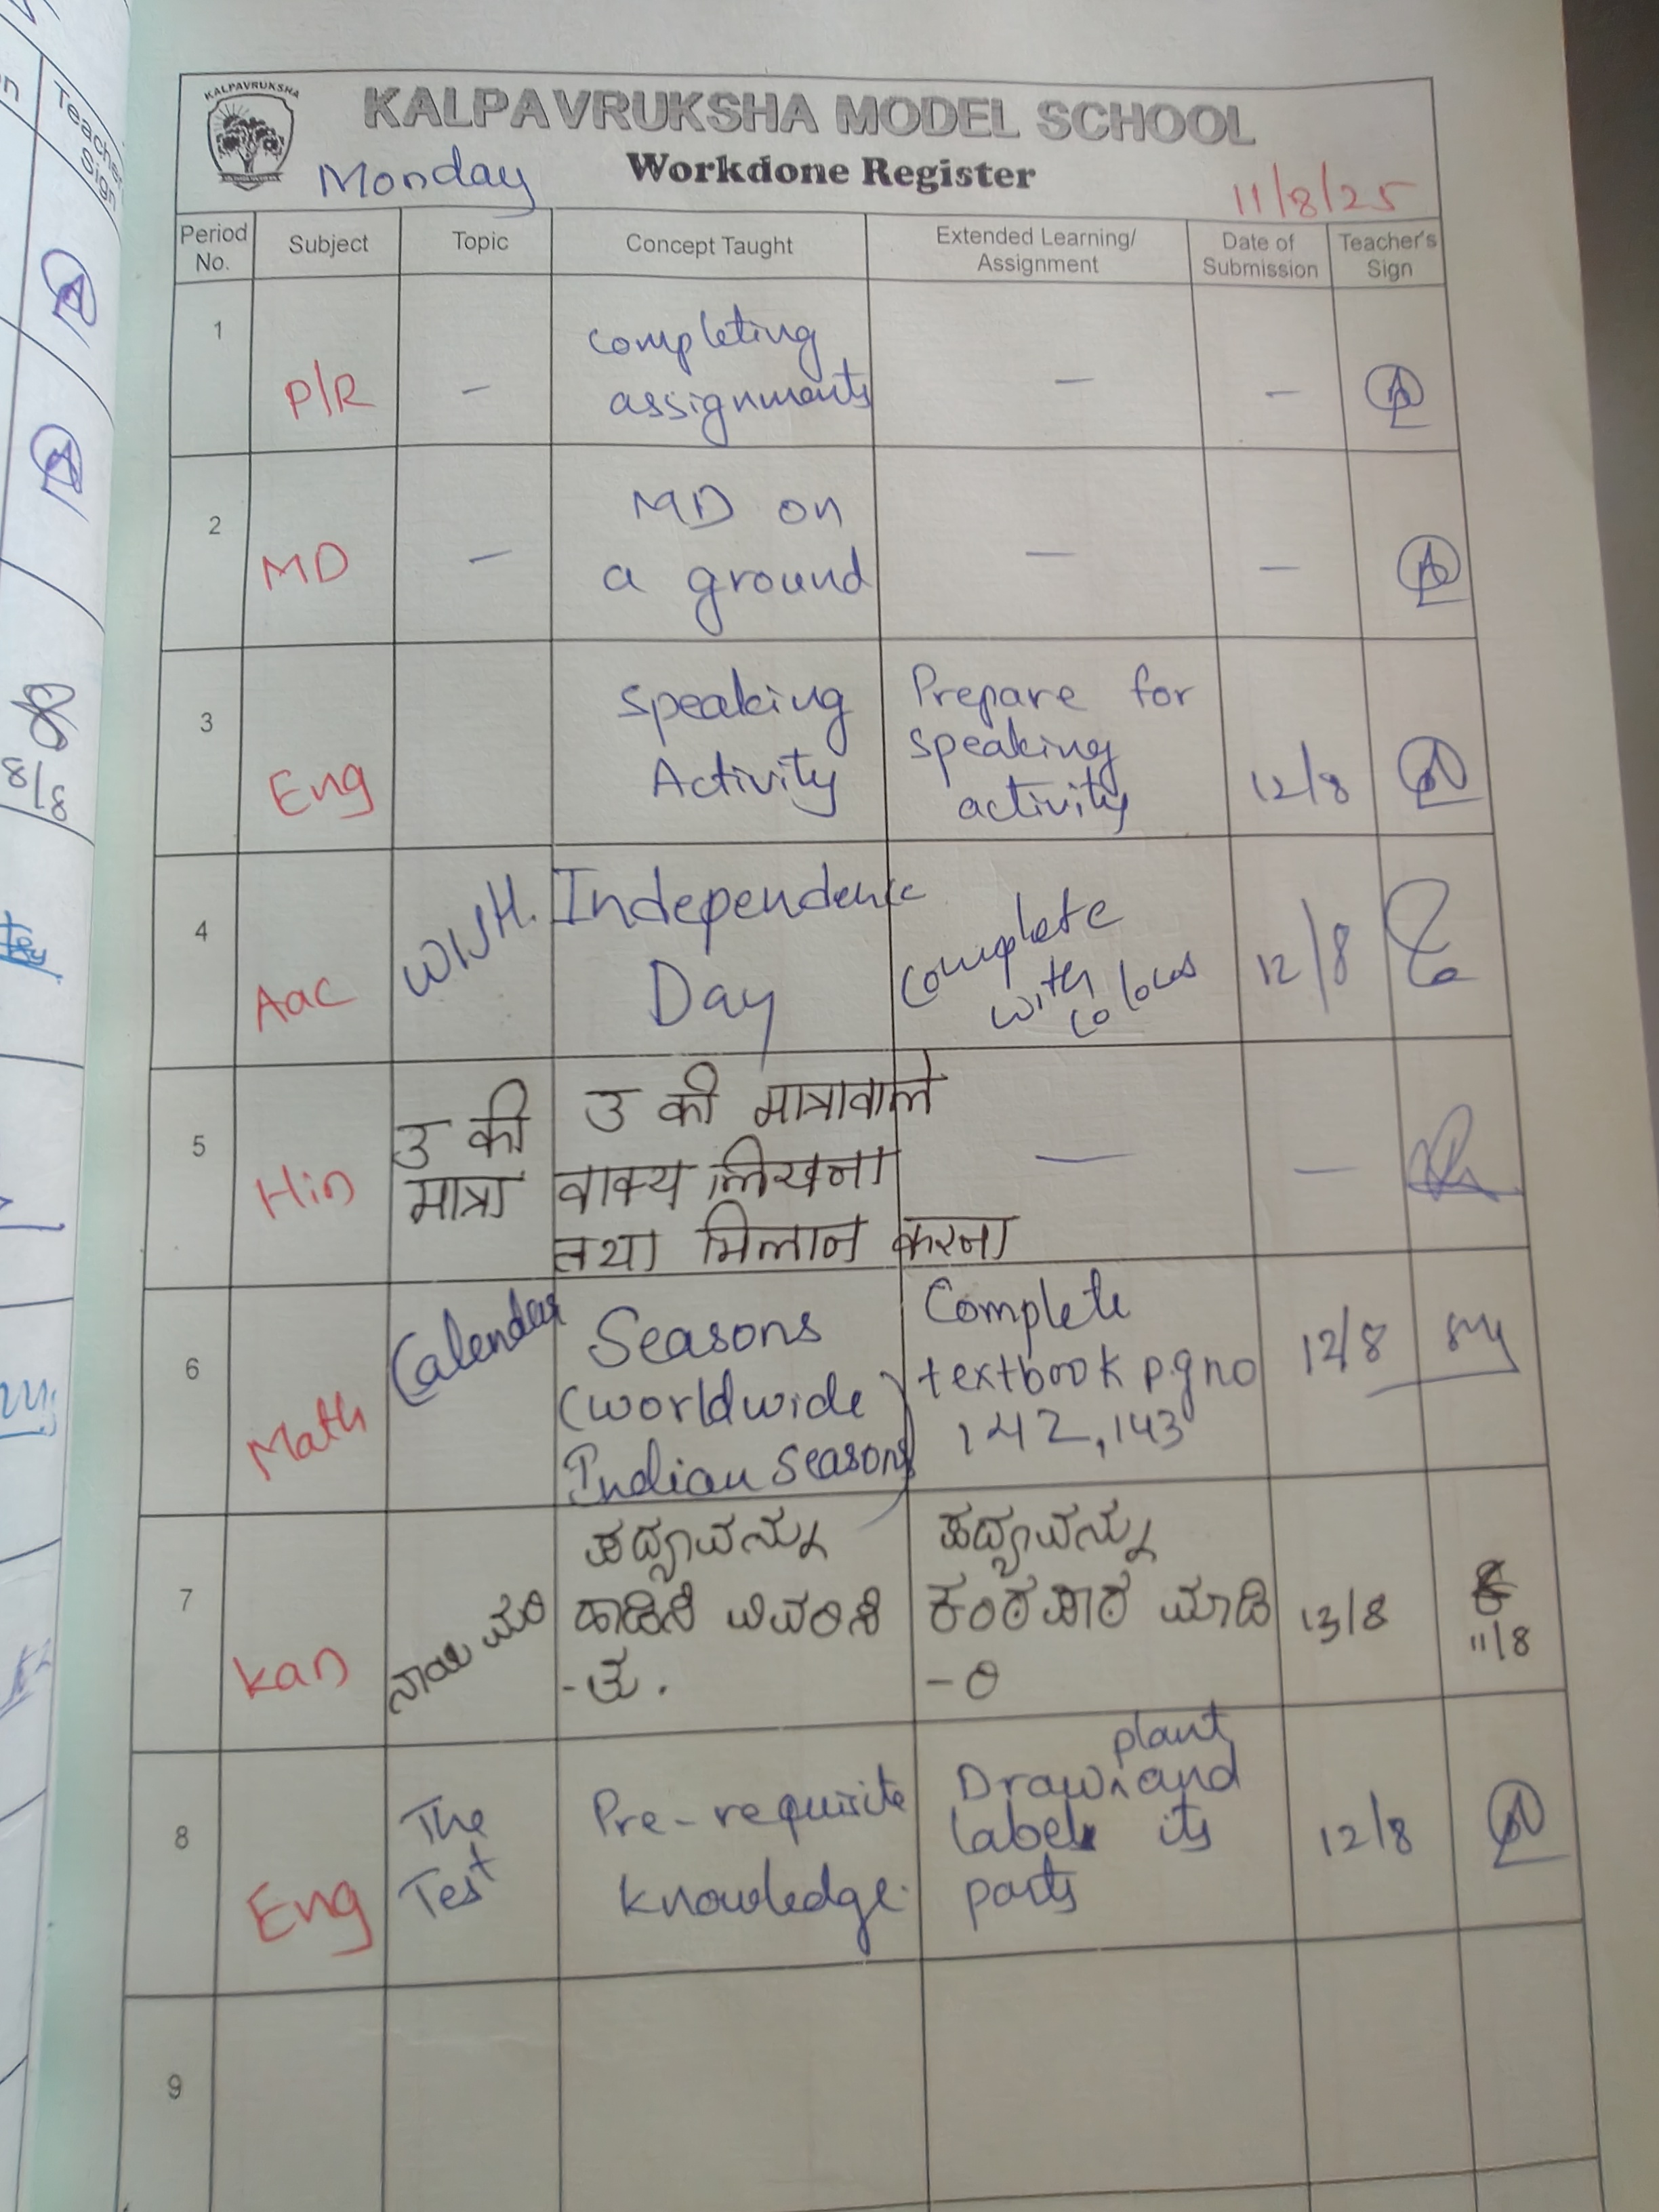 KALPAVRUKSHA
KALPAVRUKSHA MODEL SCHOOL
Monday Workdone Register 11/8/25
Period No. Subject Topic Concept Taught Extended Learning/ Assignment Date of Submission Teacher's Sign
1 P/R – completing assignments – –
2 MD – MD on a ground – –
3 Eng speaking Activity Prepare for speaking activity 12/8
4 Aac Independence Day complete with colours 12/8
5 Hin उ की मात्रा उ की मात्रावाले वाक्य लिखना तथा मिलान करना – –
6 Math Calendar Seasons (worldwide Indian seasons) Complete textbook pg no 142, 143 12/8
7 Kan ನಾಯಿ ಮರಿ ಪದ್ಯವನ್ನು ಹಾಡಿಸಿ ವಿವರಿಸಿ -ತು. ಪದ್ಯವನ್ನು ಕಂಠಪಾಠ ಮಾಡಿ -ರಿ 13/8 11/8
8 Eng The Test Pre-requisite knowledge. Draw plant and label its parts 12/8
9
Teacher's Sign
8/8